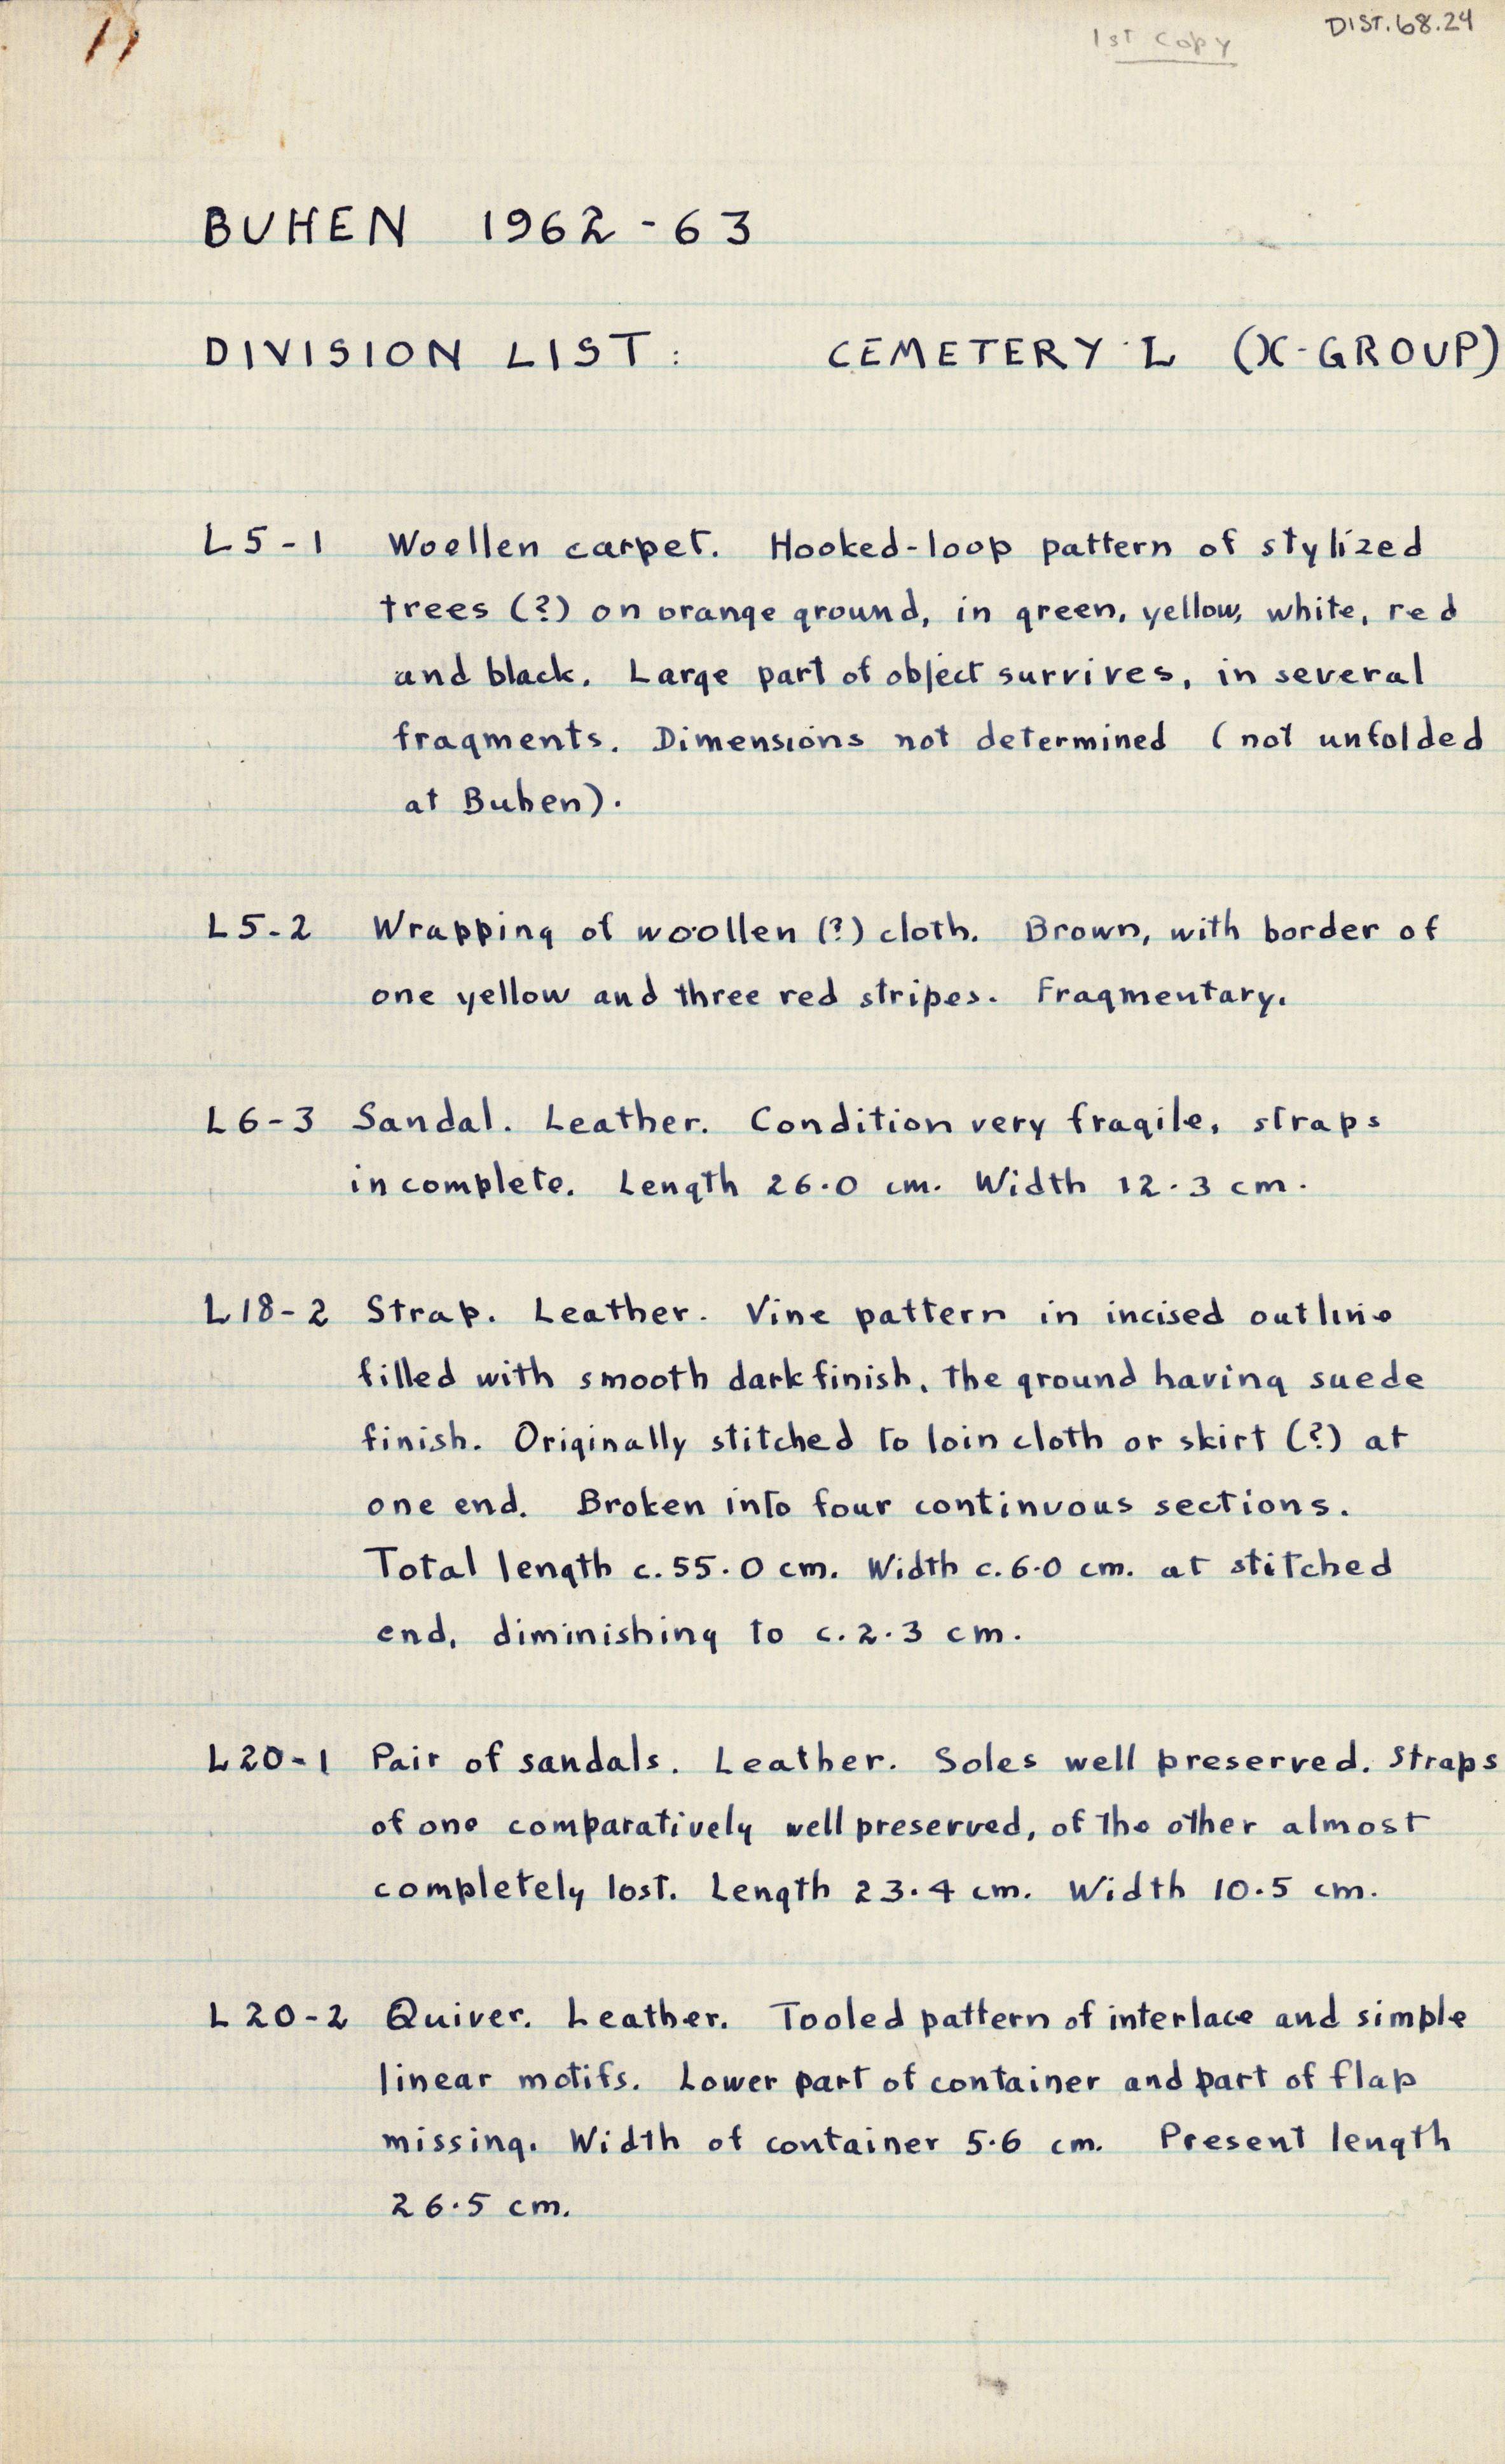 1st Copy DIST.68.24
BUHEN 1962-63
DIVISION LIST: CEMETERY L (X-GROUP)
L5-1 Woollen carpet. Hooked-loop pattern of stylized
trees (?) on orange ground, in green, yellow, white, red
and black. Large part of object survives, in several
fragments. Dimensions not determined (not unfolded
at Buhen).
L5-2 Wrapping of woollen (?) cloth. Brown, with border of
one yellow and three red stripes. Fragmentary.
L6-3 Sandal. Leather. Condition very fragile, straps
incomplete. Length 26.0 cm. Width 12.3 cm.
L18-2 Strap. Leather. Vine pattern in incised outline
filled with smooth dark finish, the ground having suede
finish. Originally stitched to loin cloth or skirt (?) at
one end. Broken into four continuous sections.
Total length c.55.0 cm. Width c.6.0 cm. at stitched
end, diminishing to c.2.3 cm.
L20-1 Pair of sandals. Leather. Soles well preserved. Straps
of one comparatively well preserved, of the other almost
completely lost. Length 23.4 cm. Width 10.5 cm.
L20-2 Quiver. Leather. Tooled pattern of interlace and simple
linear motifs. Lower part of container and part of flap
missing. Width of container 5.6 cm. Present length
26.5 cm.